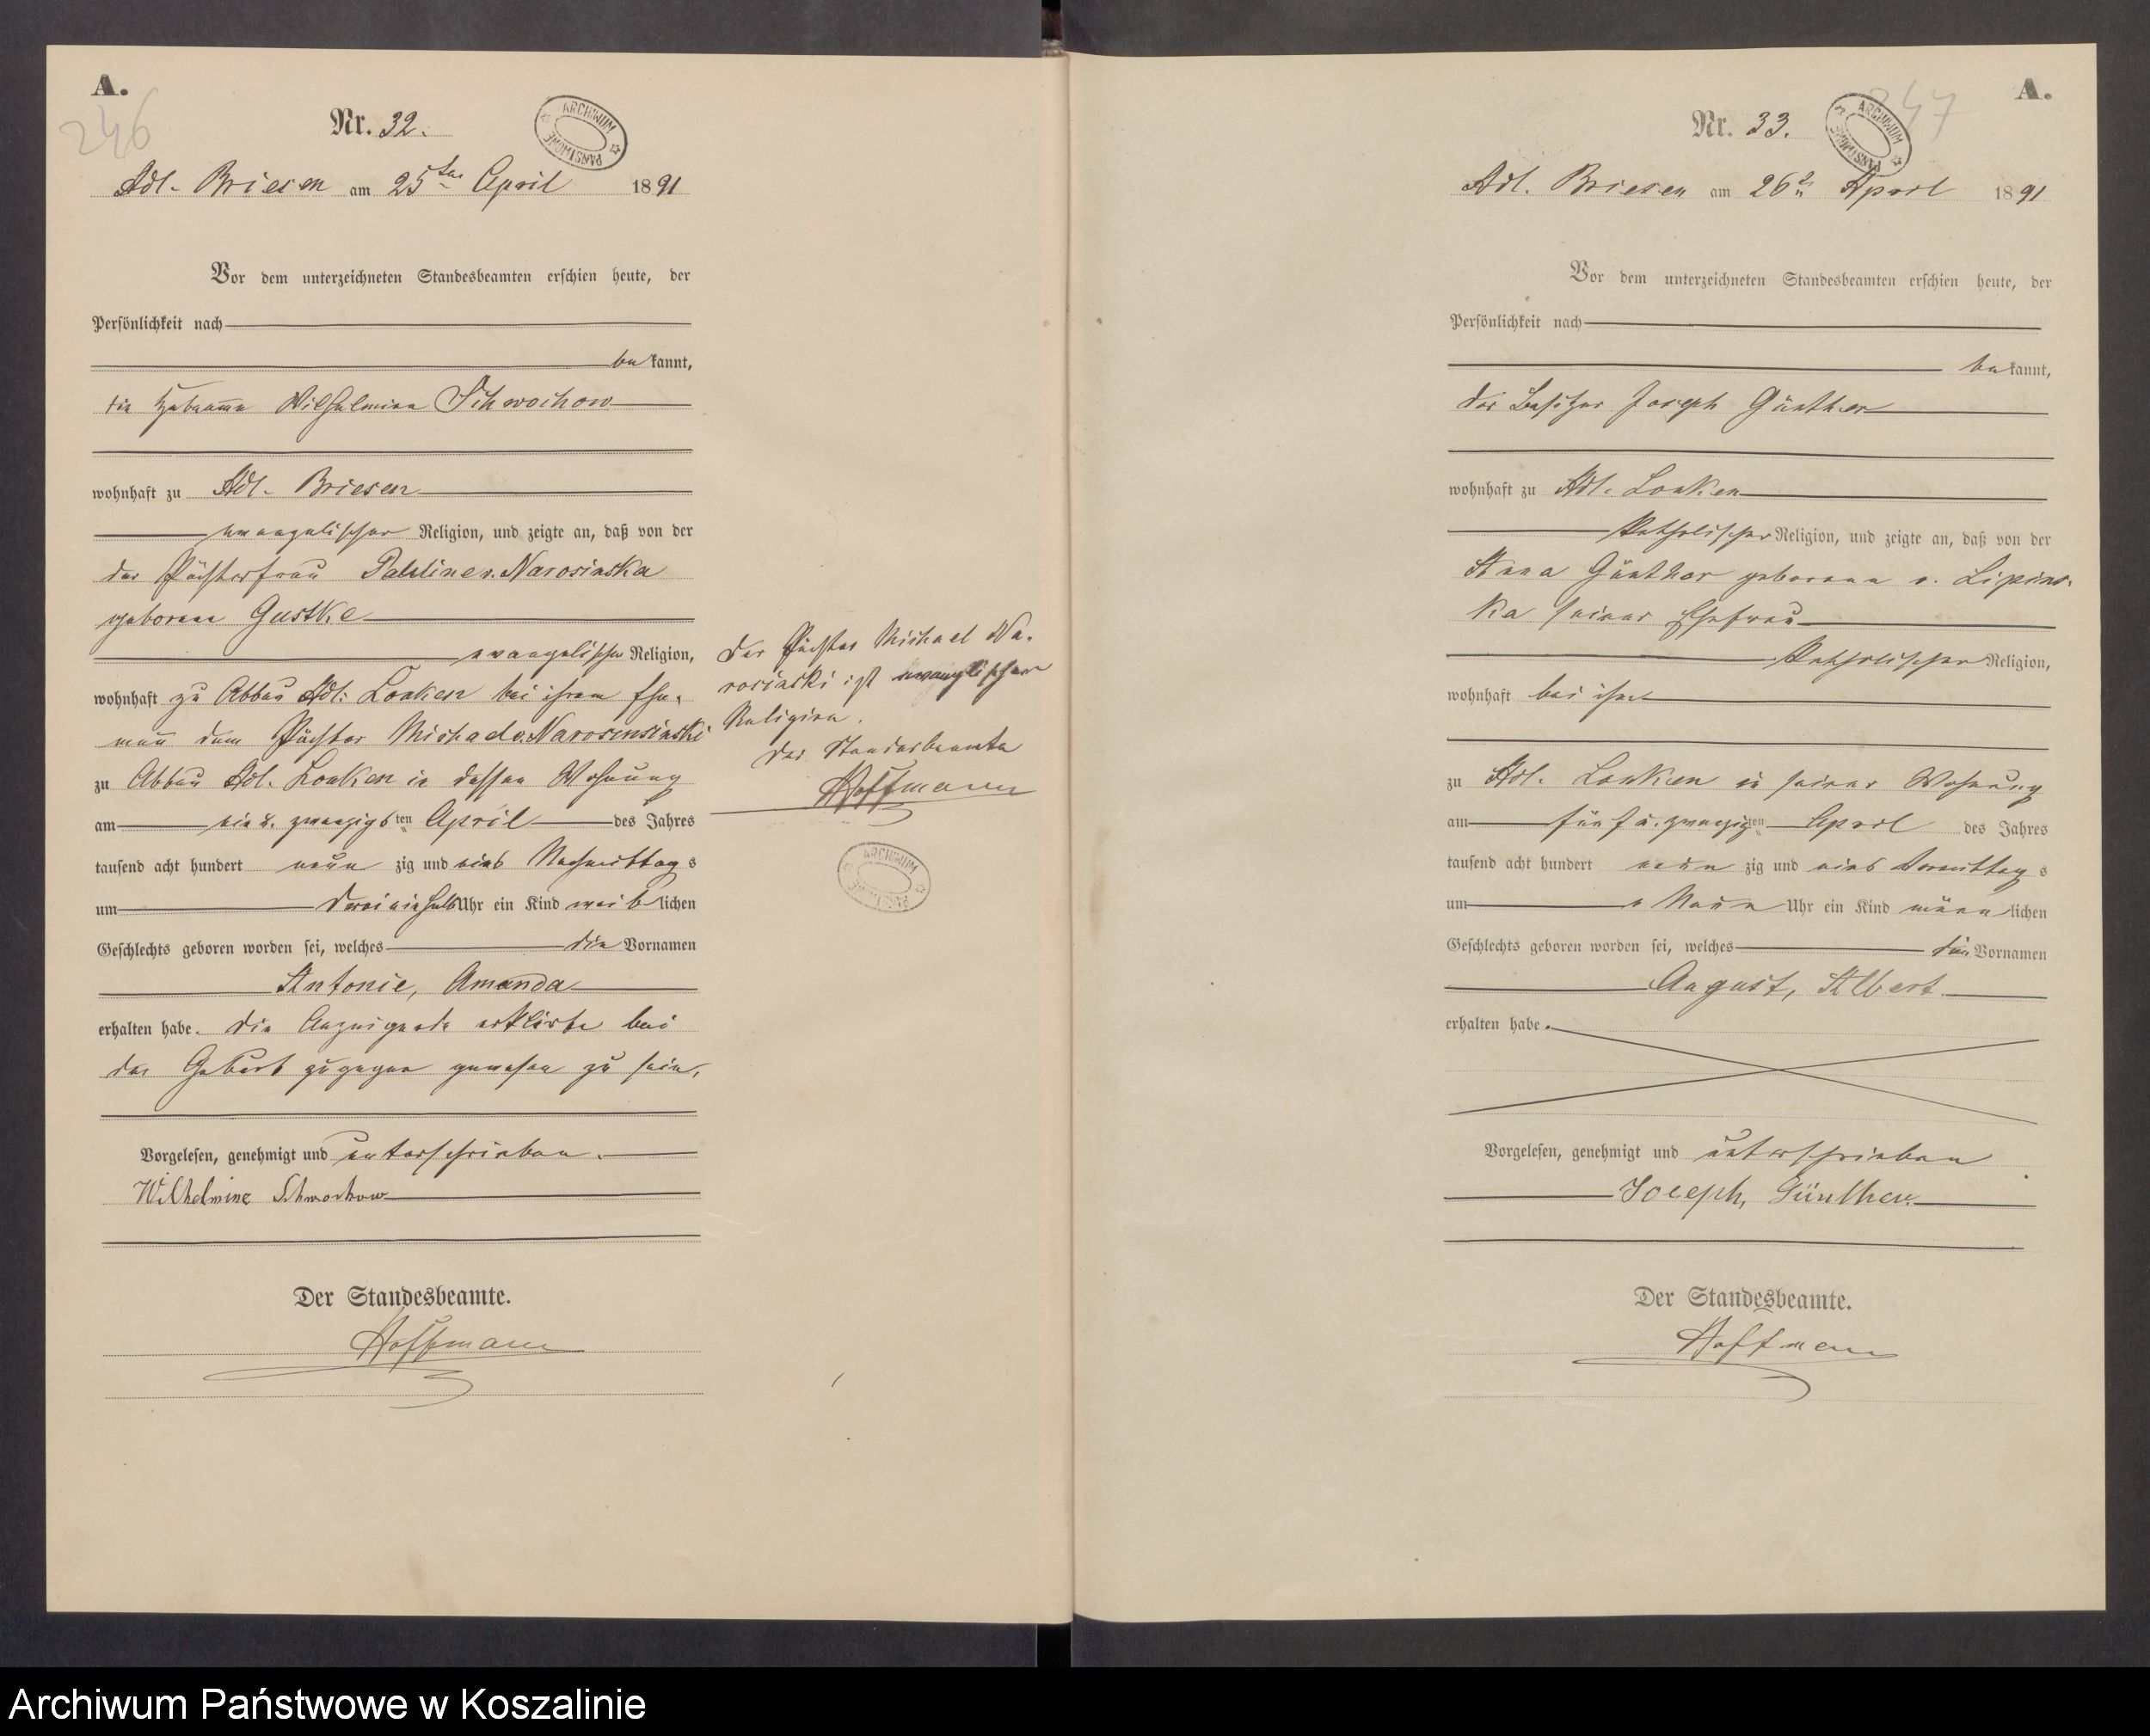 A.
246
Nr. 32.
ARCHIWUM PAŃSTWOWE
Adl. Briesen am 25ten April 1891
Vor dem unterzeichneten Standesbeamten erschien heute, der
Persönlichkeit nach
bekannt,
die Hebamme Wilhelmine Schwochow
wohnhaft zu Adl. Briesen
evangelischer Religion, und zeigte an, daß von der
der Pächterfrau Pauline v. Narosinska
geborene Gustke
evangelischer Religion,
wohnhaft zu Abbau Adl. Lonken bei ihrem Ehe-
mann dem Pächter Michael v. Narosinsinski
zu Abbau Adl. Lonken in dessen Wohnung
am ein u. zwanzigsten April des Jahres
tausend acht hundert neunzig und eins Nachmittags
um drei ein halb Uhr ein Kind weiblichen
Geschlechts geboren worden sei, welches die Vornamen
Antonie, Amanda
erhalten habe. Die Anzeigende erklärte bei
der Geburt zugegen gewesen zu sein.
Vorgelesen, genehmigt und unterschrieben.
Wilhelmine Schwochow
Der Standesbeamte.
Hoffmann
Der Pächter Michael Na-
rosinski ist evangelischer
Religion.
Der Standesbeamte
Hoffmann
ARCHIWUM PAŃSTWOWE
A.
247
Nr. 33.
ARCHIWUM PAŃSTWOWE
Adl. Briesen am 26ten April 1891
Vor dem unterzeichneten Standesbeamten erschien heute, der
Persönlichkeit nach
bekannt,
der Besitzer Joseph Günther
wohnhaft zu Adl. Lonken
katholischer Religion, und zeigte an, daß von der
Anna Günther geborene v. Lipins-
ka seiner Ehefrau
katholischer Religion,
wohnhaft bei ihm
zu Adl. Lonken in seiner Wohnung
am fünf u. zwanzigsten April des Jahres
tausend acht hundert neunzig und eins Vormittags
um Neun Uhr ein Kind männlichen
Geschlechts geboren worden sei, welches die Vornamen
August, Albert
erhalten habe.
Vorgelesen, genehmigt und unterschrieben
Joseph, Günther.
Der Standesbeamte.
Hoffmann
Archiwum Państwowe w Koszalinie